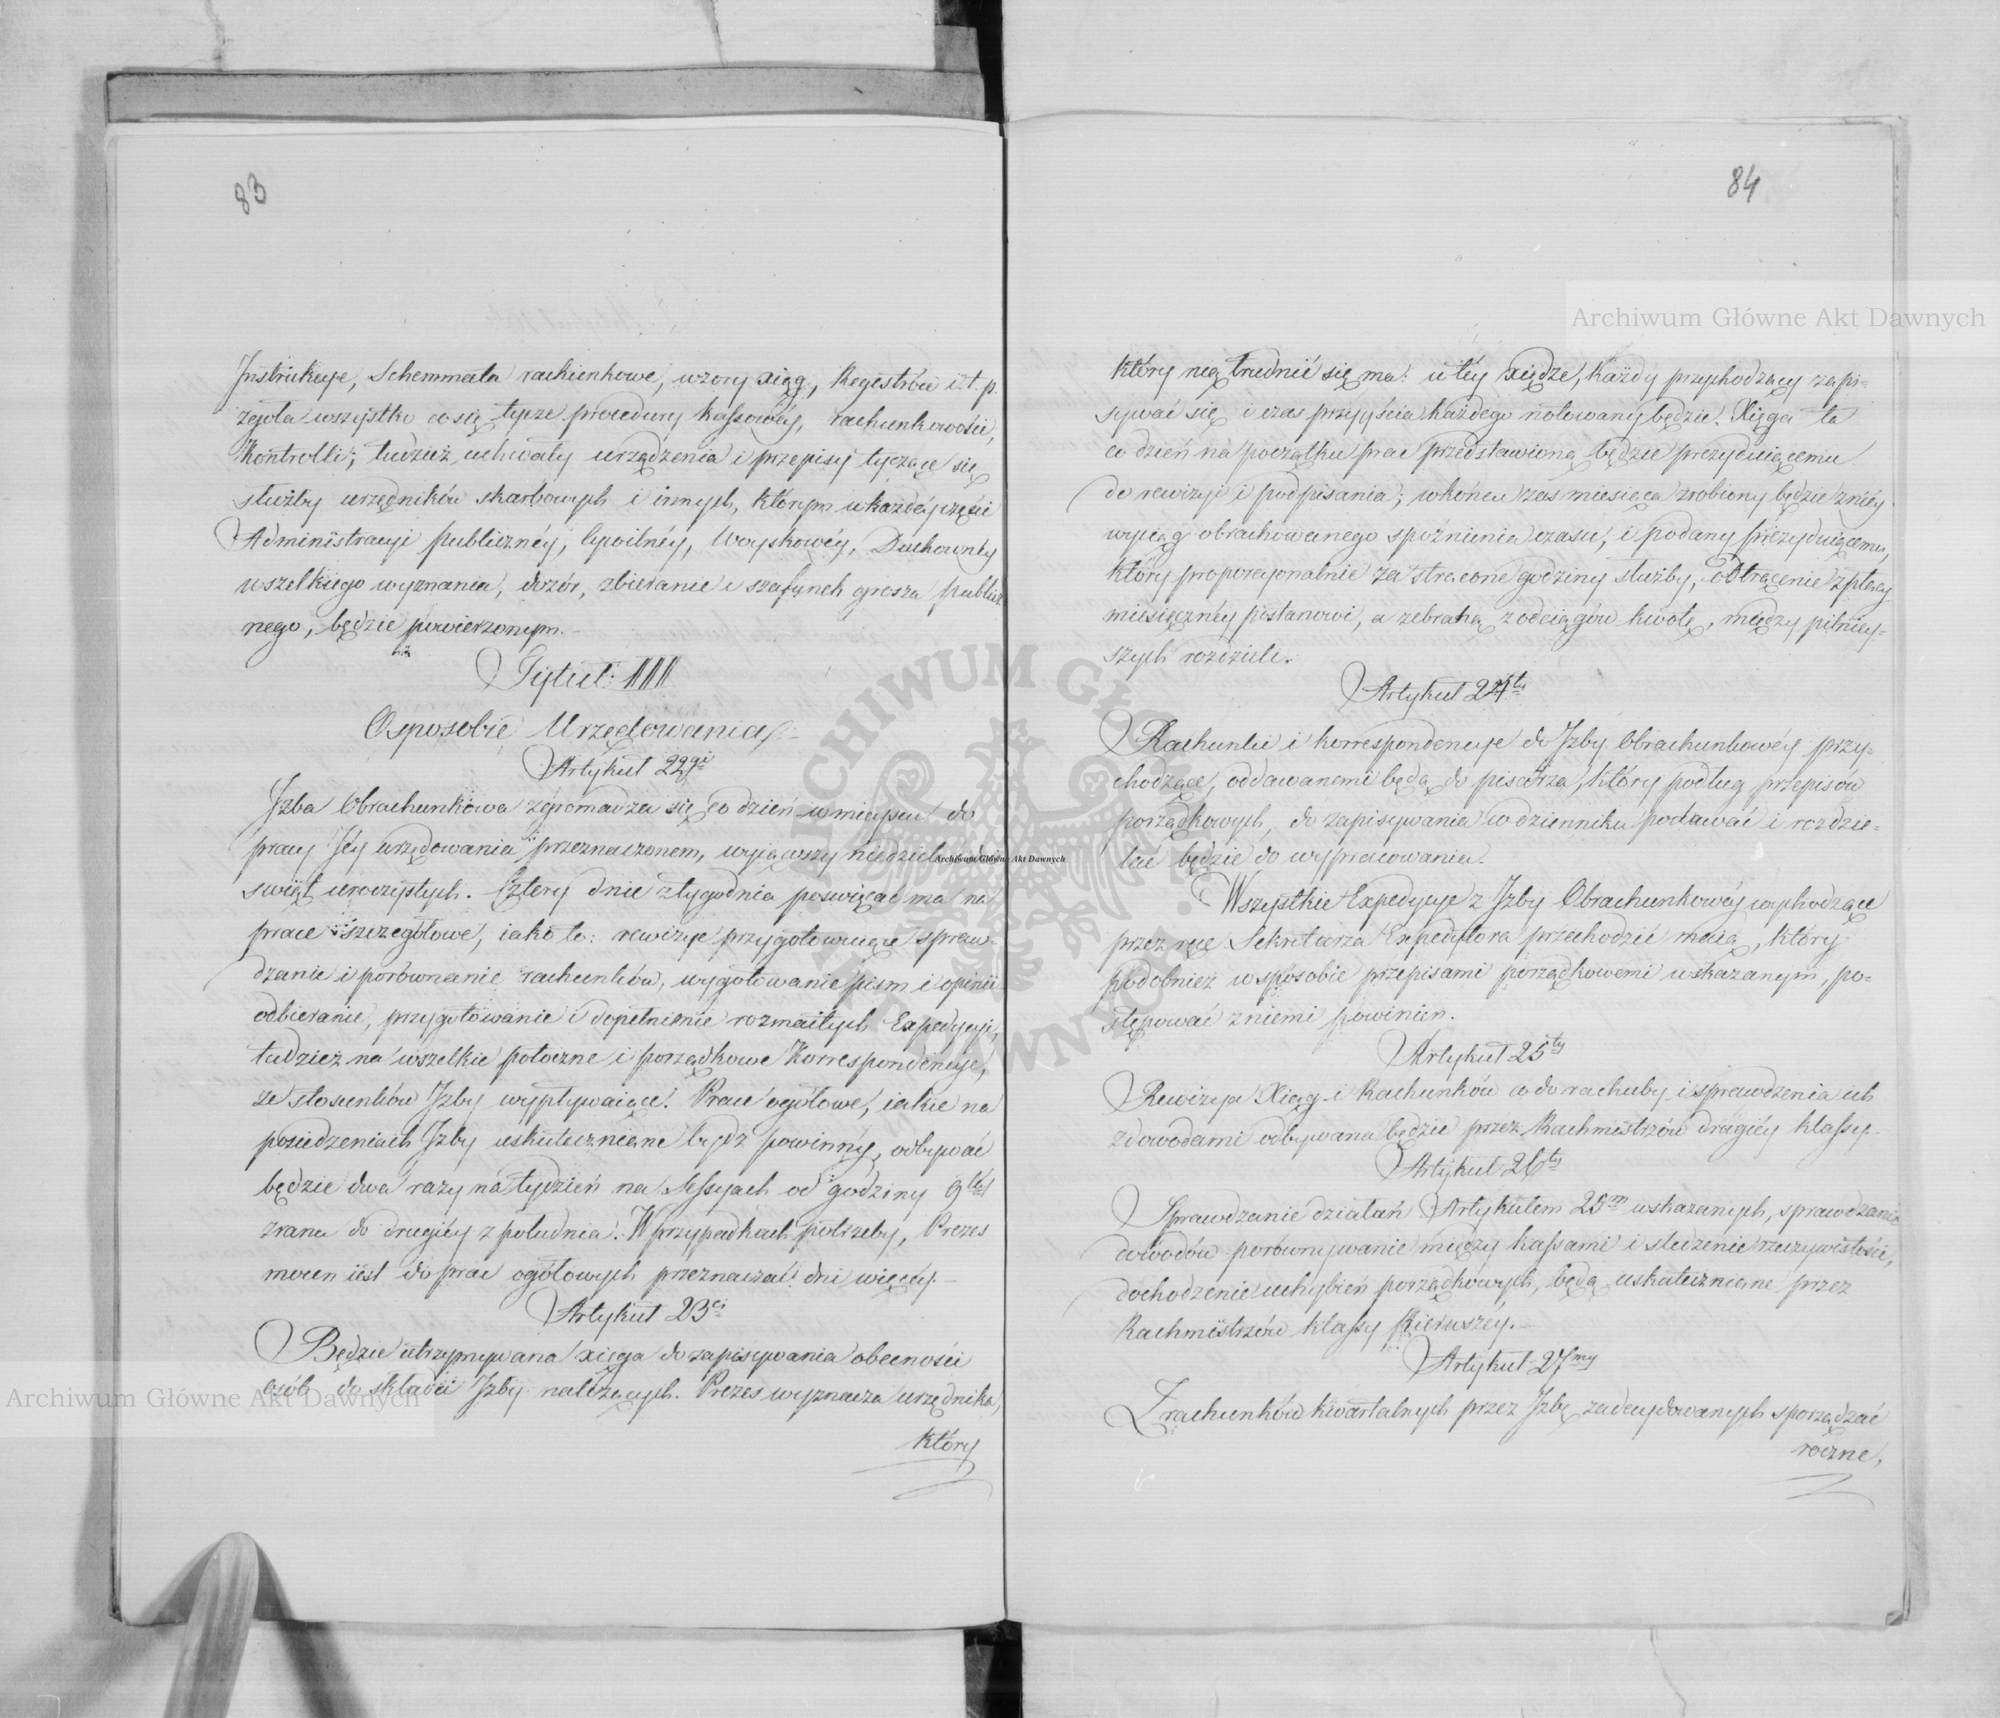 83
Instrukcye, Schemmata rachunkowe, wzory xiąg, Regestrów i t. p.
zgoła wszystko co się tycze procedury kassowéy, rachunkowości,
Kontrolli; tudzież uchwały urządzenia i przepisy tyczące się
służby urzędników skarbowych i innych, którym w każdéy części
Administracyi publicznéy, Cywilnéy, Woyskowéy, Duchownéy
wszelkiego wyznania, dozór, zbieranie i szafunek grosza publicz
nego, będzie powierzonym.
Tytuł IIII
O sposobie Urzędowania
Artykuł 22gi
Izba Obrachunkowa zgromadza się co dzień w mieyscu do
pracy Jéy urzędowania przeznaczonem, wyiąwszy niedziel
swiąt uroczystych. Cztery dnie z tygodnia poswięcać ma na
prace szczegółowe, iako to: rewizye przygotowuiące spraw-
dzanie i porównanie rachunków, wygotowanie pism i opinii
odbieranie, przygotowanie i dopełnienie rozmaitych Expedycyi,
tudzież na wszelkie potoczne i porządkowe Korrespondencye,
ze stosunków Izby wypływaiące. Prace ogółowe, iakie na
posiedzeniach Izby uskuteczniane bydź powinny, odbywać
będzie dwa razy na tydzień na Sessyach od godziny 9téy
zrana do drugiéy z południa. W przypadkach potrzeby, Prezes
mocen iest do prac ogółowych przeznaczać dni więcéy.
Artykuł 23ci
Będzie utrzymywana xięga do zapisywania obecności
osób do składu Izby należących. Prezes wyznacza urzędnika,
który
84
który nią trudnić się ma: w téy xiędze, każdy przychodzący zapi-
sywać się i czas przyyścia każdego notowany będzie. Xięga ta
co dzień na początku prac przedstawioną będzie prezyduiącemu
do rewizyi i podpisania; w końcu zaś miesiąca zrobiony będzie z niéy
wyciąg obrachowanego spóźnienia czasu, i podany prezyduiącemu,
który proporcyonalnie za stracone godziny służby, odtrącenie z płacy
miesięcznéy postanowi, a zebraną z odciągów kwotę, między pilniey-
szych rozdzieli.
Artykuł 24ty
Rachunki i korrespondencye do Izby Obrachunkowéy przy-
chodzące, oddawanemi będą do pisarza, który podług przepisów
porządkowych, do zapisywania w dzienniku podawać i rozdzie-
lać będzie do wypracowania.
Wszystkie Expedycye z Izby Obrachunkowéy wychodzące
przez ręce Sekretarza Expedytora przechodzić maią, który
podobnież w sposobie przepisami porządkowemi wskazanym, po-
stępować z niemi powinien.
Artykuł 25ty
Rewizya Xiąg i Rachunków co do rachuby i sprawdzenia ich
z dowodami odbywana będzie przez Rachmistrzów drugiéy klassy.
Artykuł 26ty
Sprawdzanie działań Artykułem 25m wskazanych, sprawdzanie
dowodów porównywanie między kassami i sledzenie rzeczywistości,
dochodzenie uchybień porządkowych, będą uskuteczniane przez
Rachmistrzów klassy Pierwszéy.
Artykuł 27my
Z rachunków kwartalnych przez Izbę zadecydowanych sporządzać
roczne,
Archiwum Główne Akt Dawnych
Archiwum Główne Akt Dawnych
Archiwum Główne Akt Dawnych